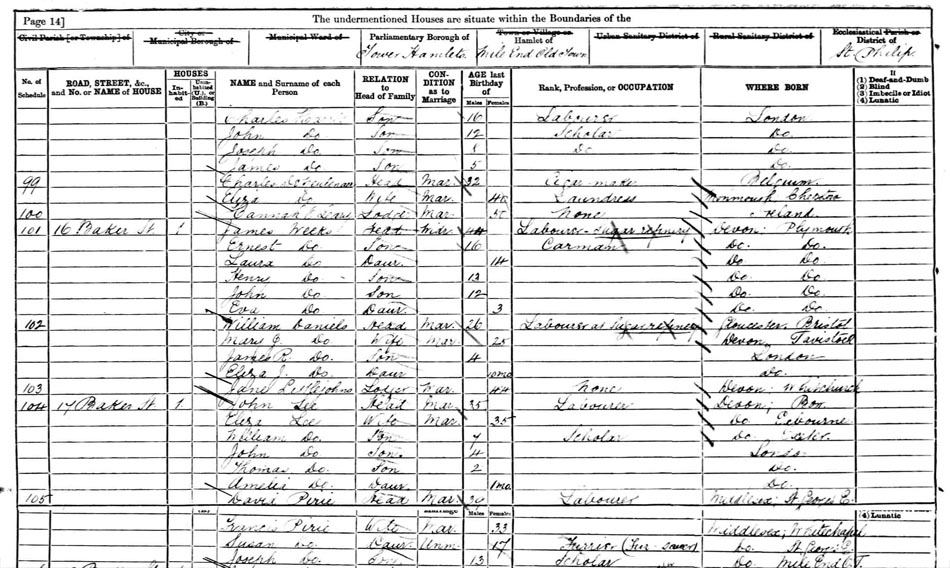 Page 14]
The undermentioned Houses are situate within the Boundaries of the
Civil Parish [or Township] of
City or Municipal Borough of
Municipal Ward of
Parliamentary Borough of
Tower Hamlets
Town or Village or Hamlet of
Mile End Old Town
Urban Sanitary District of
Rural Sanitary District of
Ecclesiastical Parish or District of
St Philips
No. of Schedule
ROAD, STREET, &c., and No. or NAME of HOUSE
HOUSES
In-habit-ed
Unin-habited (U.), or Building (B.)
NAME and Surname of each Person
RELATION to Head of Family
CON-DITION as to Marriage
AGE last Birthday of
Males
Females
Rank, Profession, or OCCUPATION
WHERE BORN
If
(1) Deaf-and-Dumb
(2) Blind
(3) Imbecile or Idiot
(4) Lunatic
Charles Son 16 Labourer London
John Do Son 12 Scholar Do.
Joseph Do Son 8 Do Do.
James Do Son 5 Do.
99 Charles Head Mar. 32 Cigar maker Belgium
Eliza Do Wife Mar. 40 Laundress Monmouth
100 Lodger Mar 50 None
101 16 Baker St 1 James Weeks Head Mar 44 Labourer Sugar refinery Devon: Plymouth
Ernest Do Son 16 Carman Do. Do.
Laura Do Daur. 14 Do Do
Henry Do Son 13 Do. Do
John Do Son 12 Do. Do
Eva Do Daur 3 Do. Do
102 William Daniels Head Mar. 26 Labourer at Sugar refinery Gloucester Bristol
Mary J. Do Wife Mar 25 Devon, Tavistock
James R. Do. Son 4 London
Eliza J. Do. Daur 10 mo Do.
103 Jane Lodger 44 None Devon: Whitchurch
104 17 Baker St. 1 John Lee Head Mar 35 Labourer Devon;
Eliza Lee Wife Mar. 35 Do
William Do Son 7 Scholar Do
John Do Son. 4
Thomas Do. Son 2 Do.
Amelia Do. Daur 1 mo. Do.
105 David Pirie Head Mar. 39 Labourer Middlesex; St Georges E.
Males Females (4) Lunatic
Francis Pirie Wife Mar. 33 Middlesex; Whitechapel
Susan Do Daur. Unm 17 Furrier (Fur sewer) Do. St Georges E.
Joseph Do 13 Scholar Do Mile End O.T.